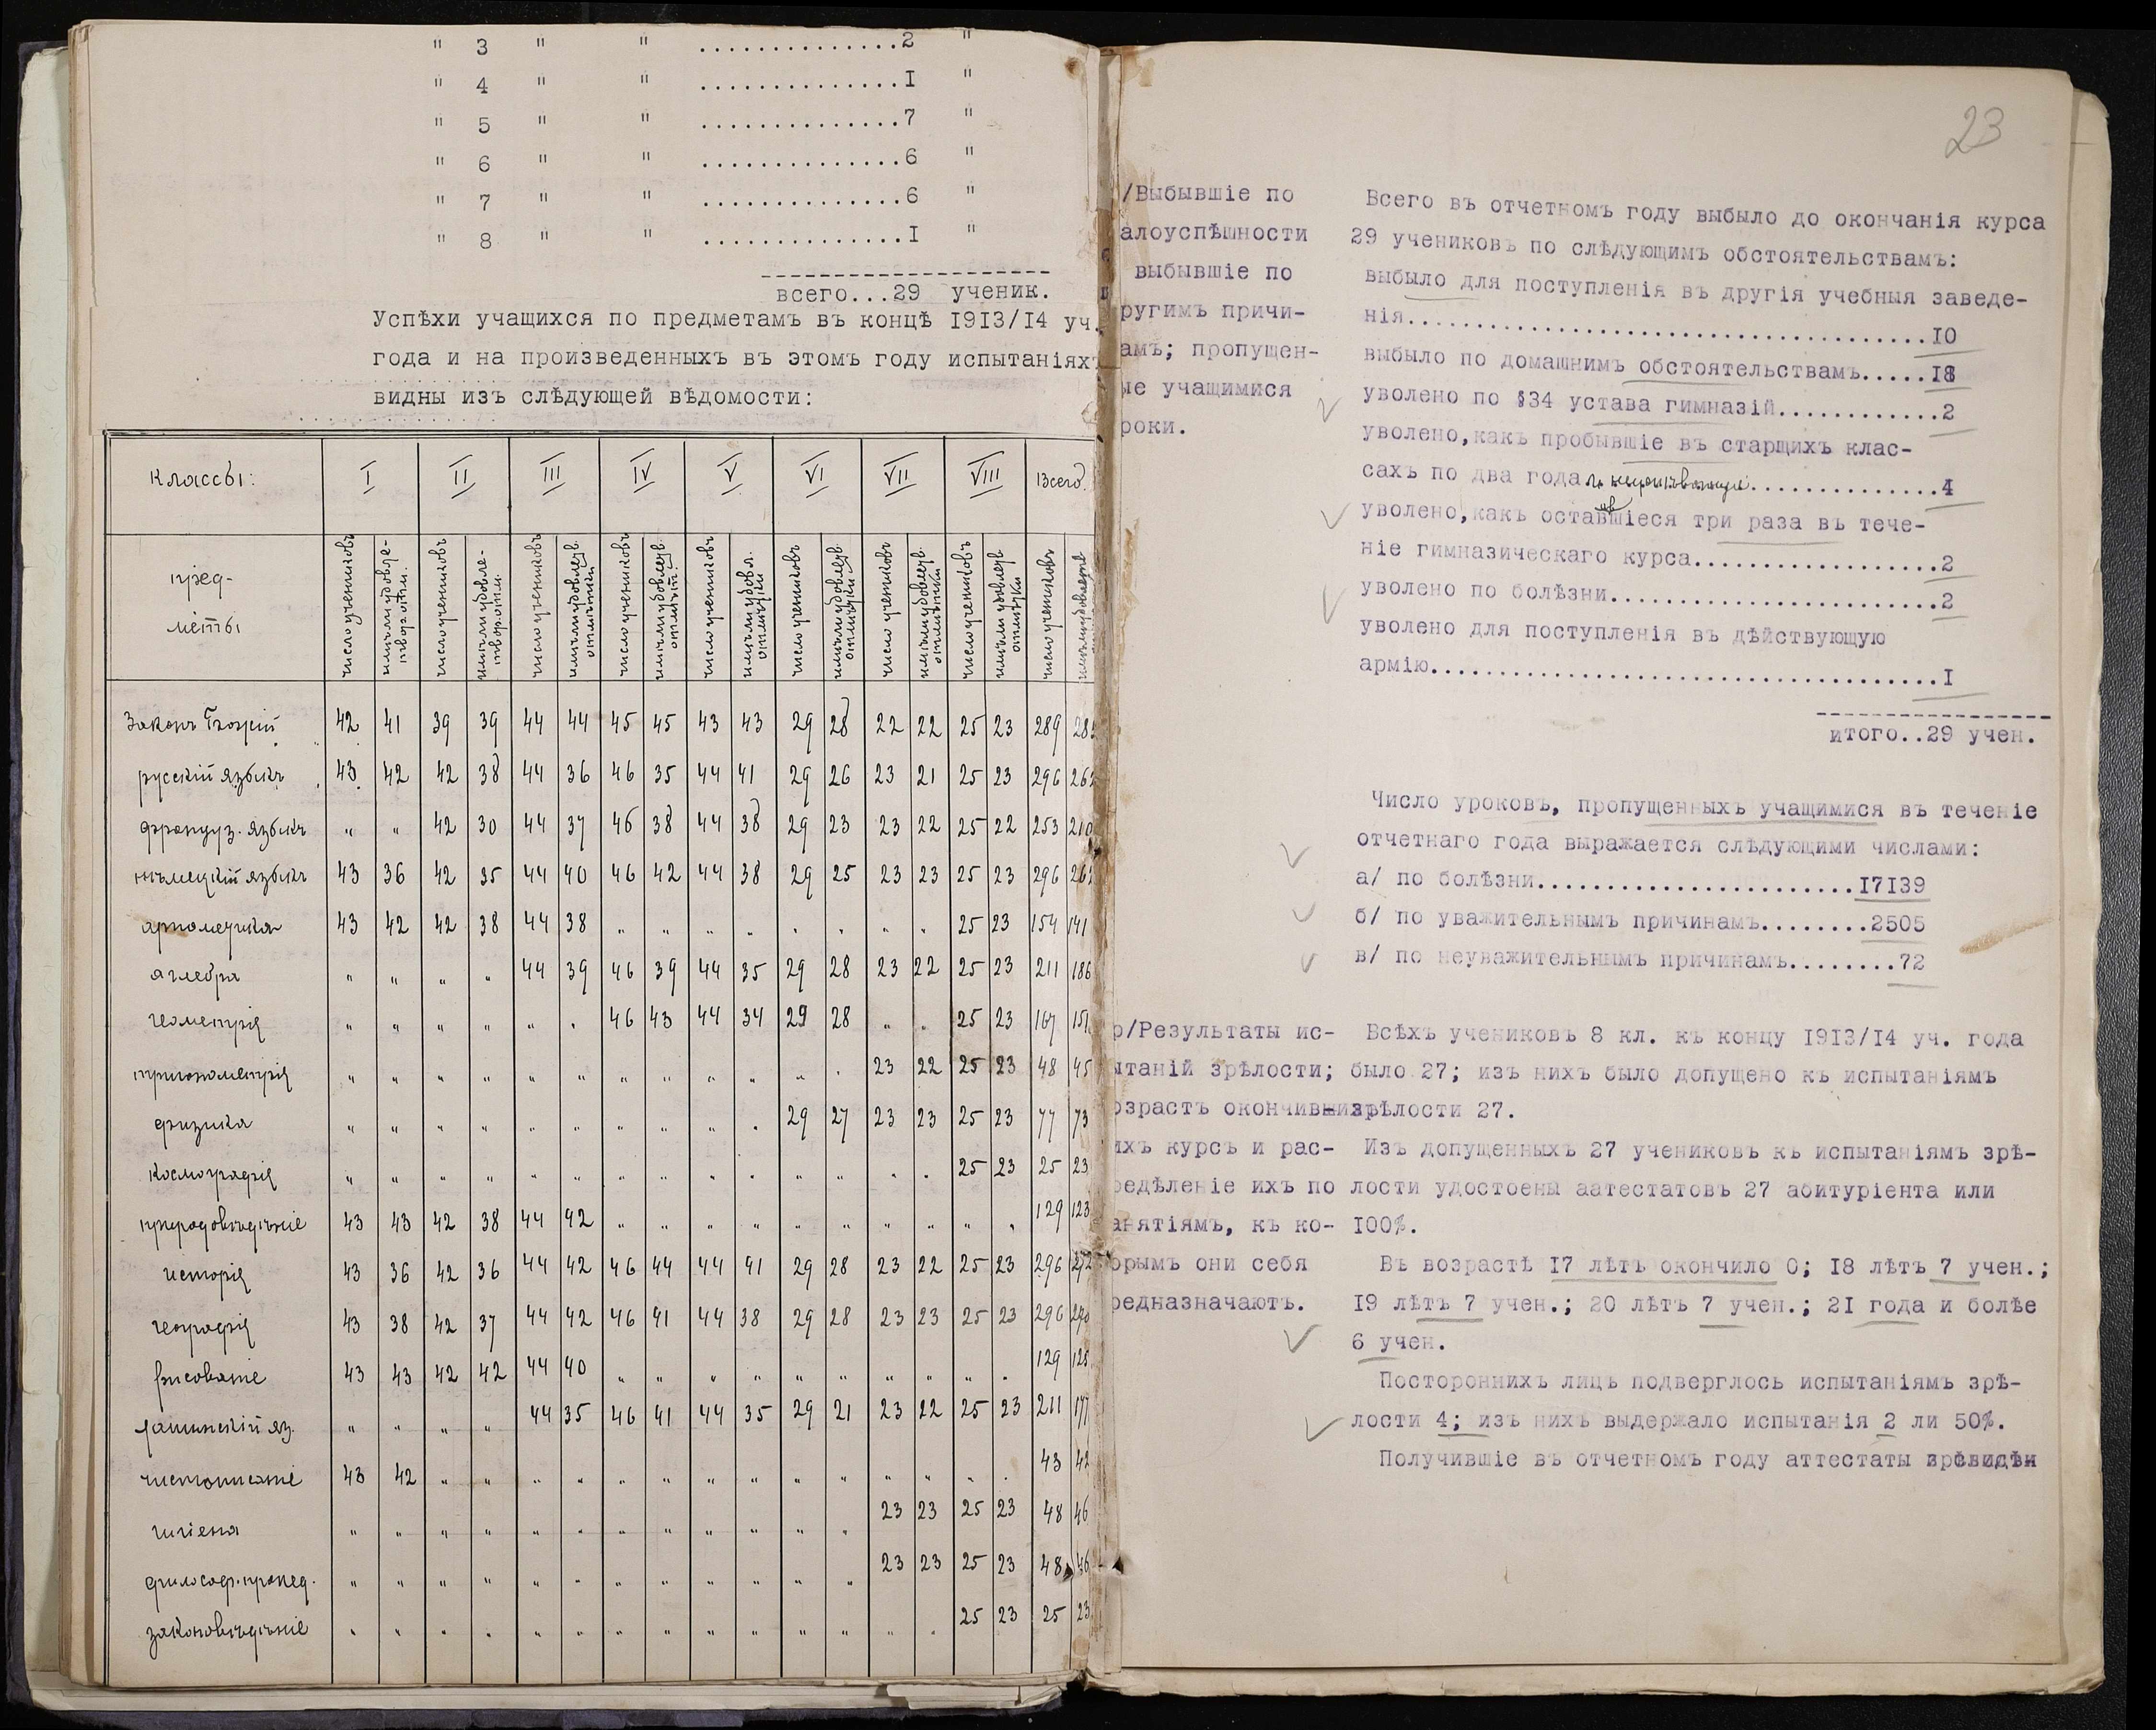 " 3 " " ..............2 "
" 4 " " ..............I "
" 5 " " ..............7 "
" 6 " " ..............6 "
" 7 " " ..............6 "
" 8 " " ..............I "
всего...29 ученик.
Успѣхи учащихся по предметамъ въ концѣ I9I3/I4 уч.
года и на произведенныхъ въ этомъ году испытаніяхъ
видны изъ слѣдующей вѣдомости:
Классы: I II III IV V VI VII VIII Всего.
пред-
меты
Законъ Божій 42 41 39 39 44 44 45 45 43 43 29 28 22 22 25 23 289 28
русскій языкъ 43 42 42 38 44 36 46 35 44 41 29 26 23 21 25 23 296 262
француз. языкъ " " 42 30 44 37 46 38 44 38 29 23 23 22 25 22 253 210
нѣмецкій языкъ 43 36 42 35 44 40 46 42 44 38 29 25 23 23 25 23 296 262
арифметика 43 42 42 38 44 38 " " " " " " " " 25 23 154 141
алгебра " " " " 44 39 46 39 44 35 29 28 23 22 25 23 211 186
геометрія " " " " " " 46 43 44 34 29 28 " " 25 23 167 151
тригонометрія " " " " " " " " " " " " 23 22 25 23 48 45
физика " " " " " " " " " " 29 27 23 23 25 23 77 73
космографія " " " " " " " " " " " " " " 25 23 25 23
природовѣдѣніе 43 43 42 38 44 42 " " " " " " " " " " 129 123
исторія 43 36 42 36 44 42 46 44 44 41 29 28 23 22 25 23 296 272
географія 43 38 42 37 44 42 46 41 44 38 29 28 23 23 25 23 296 270
рисованіе 43 43 42 42 44 40 " " " " " " " " " " 129 125
латинскій яз. " " " " 44 35 46 41 44 35 29 21 23 22 25 23 211 177
чистописаніе 43 42 " " " " " " " " " " " " " " 43 42
гигіена " " " " " " " " " " " " 23 23 25 23 48 46
философ. пропед. " " " " " " " " " " " " 23 23 25 23 48 46
законовѣдѣніе " " " " " " " " " " " " " " 25 23 25 23
23
/Выбывшіе по
алоуспѣшности
выбывшіе по
ругимъ причи-
амъ; пропущен-
ые учащимися
роки.
Всего въ отчетномъ году выбыло до окончанія курса
29 учениковъ по слѣдующимъ обстоятельствамъ:
выбыло для поступленія въ другія учебныя заведе-
нія.....................................I0
выбыло по домашнимъ обстоятельствамъ.....I8
уволено по §34 устава гимназій............2
уволено,какъ пробывшіе въ старшихъ клас-
сахъ по два года ..............4
уволено,какъ оставшіеся три раза въ тече-
ніе гимназическаго курса..................2
уволено по болѣзни........................2
уволено для поступленія въ дѣйствующую
армію.....................................I
итого..29 учен.
Число уроковъ, пропущенныхъ учащимися въ теченіе
отчетнаго года выражается слѣдующими числами:
а/ по болѣзни.......................I7I39
б/ по уважительнымъ причинамъ........2505
в/ по неуважительнымъ причинамъ........72
р/Результаты ис-
ытаній зрѣлости;
озрастъ окончивши
ихъ курсъ и рас-
редѣленіе ихъ по
анятіямъ, къ ко-
орымъ они себя
редназначаютъ.
Всѣхъ учениковъ 8 кл. къ концу I9I3/I4 уч. года
было 27; изъ нихъ было допущено къ испытаніямъ
зрѣлости 27.
Изъ допущенныхъ 27 учениковъ къ испытаніямъ зрѣ-
лости удостоены аатестатовъ 27 абитуріента или
I00%.
Въ возрастѣ I7 лѣтъ окончило 0; I8 лѣтъ 7 учен.;
I9 лѣтъ 7 учен.; 20 лѣтъ 7 учен.; 2I года и болѣе
6 учен.
Постороннихъ лицъ подверглось испытаніямъ зрѣ-
лости 4; изъ нихъ выдержало испытанія 2 ли 50%.
Получившіе въ отчетномъ году аттестаты